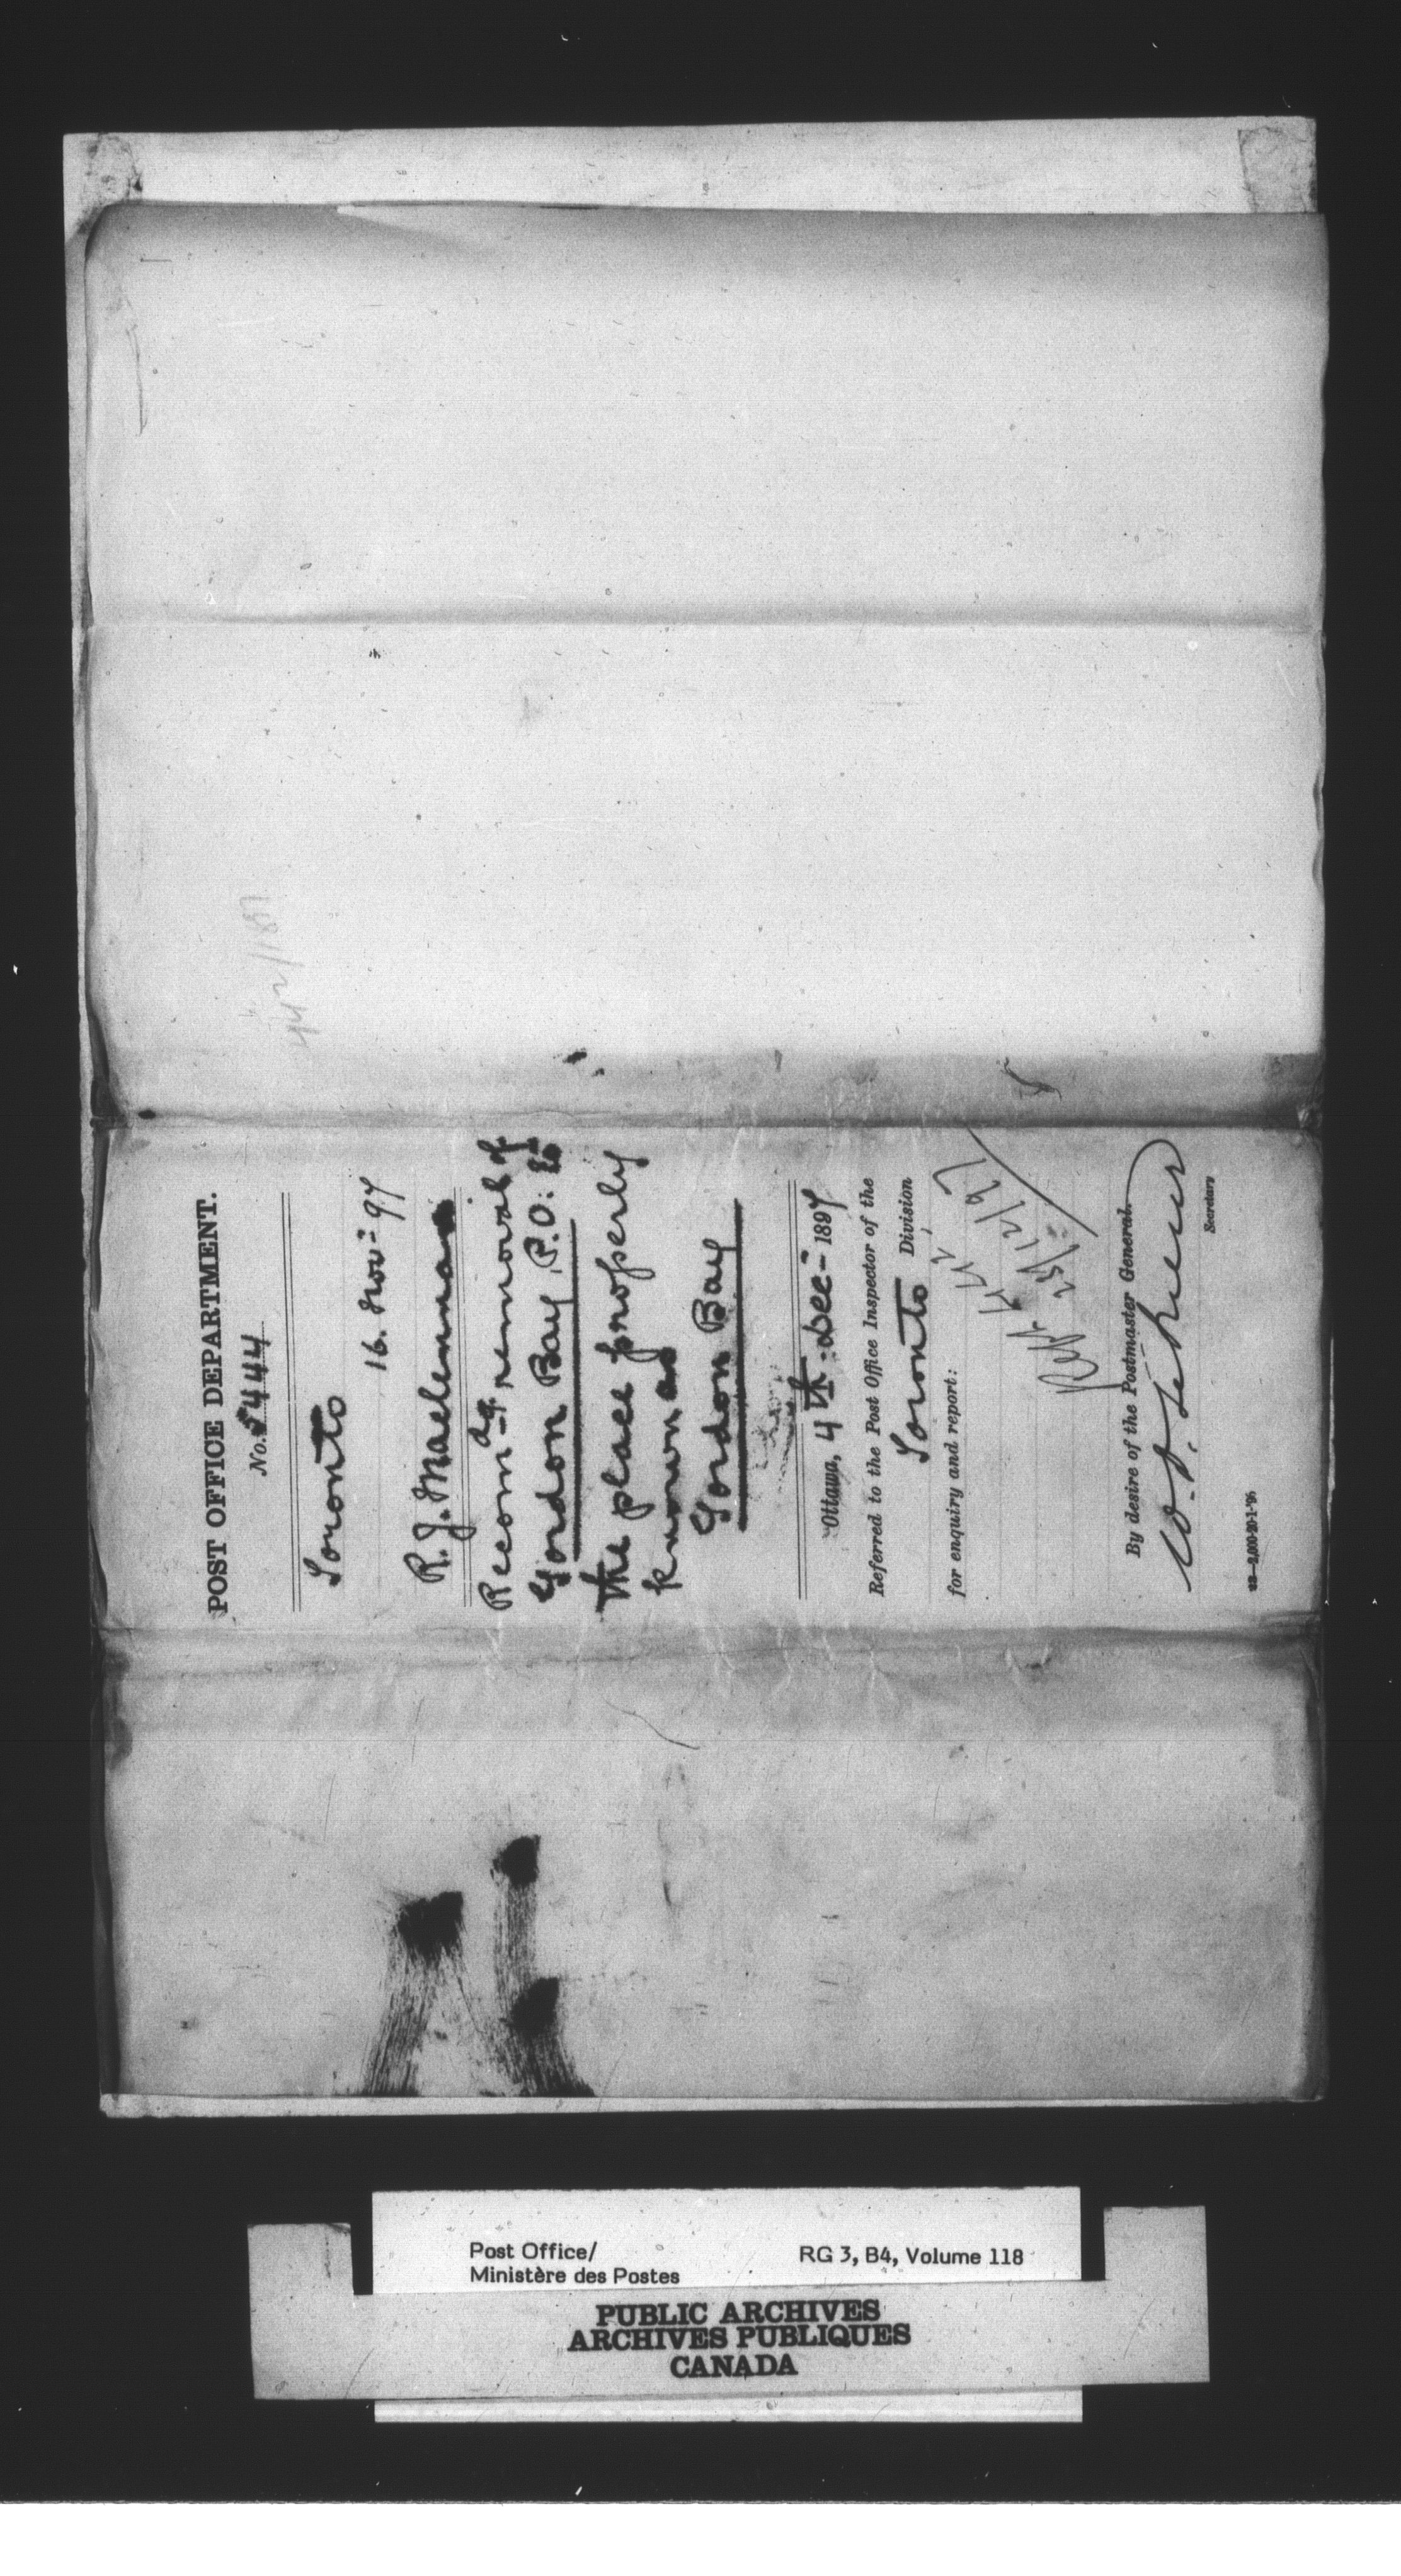 POST OFFICE DEPARTMENT.
No. 5444
Toronto
16. Nov- 97
R. J. Maclennan
Recom-dg. removal of
Gordon Bay P.O. to
the place properly
known as
Gordon Bay
Ottawa, 4th Dec- 1897
Referred to the Post Office Inspector of the
Toronto Division
for enquiry and report:
23/12/97
By desire of the Postmaster General.
Secretary
442/1897
Post Office/
Ministère des Postes
RG 3, B4, Volume 118
PUBLIC ARCHIVES
ARCHIVES PUBLIQUES
CANADA